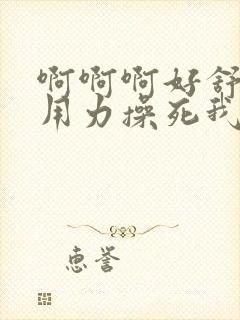 啊啊啊好舒
用力操死我
惠誉